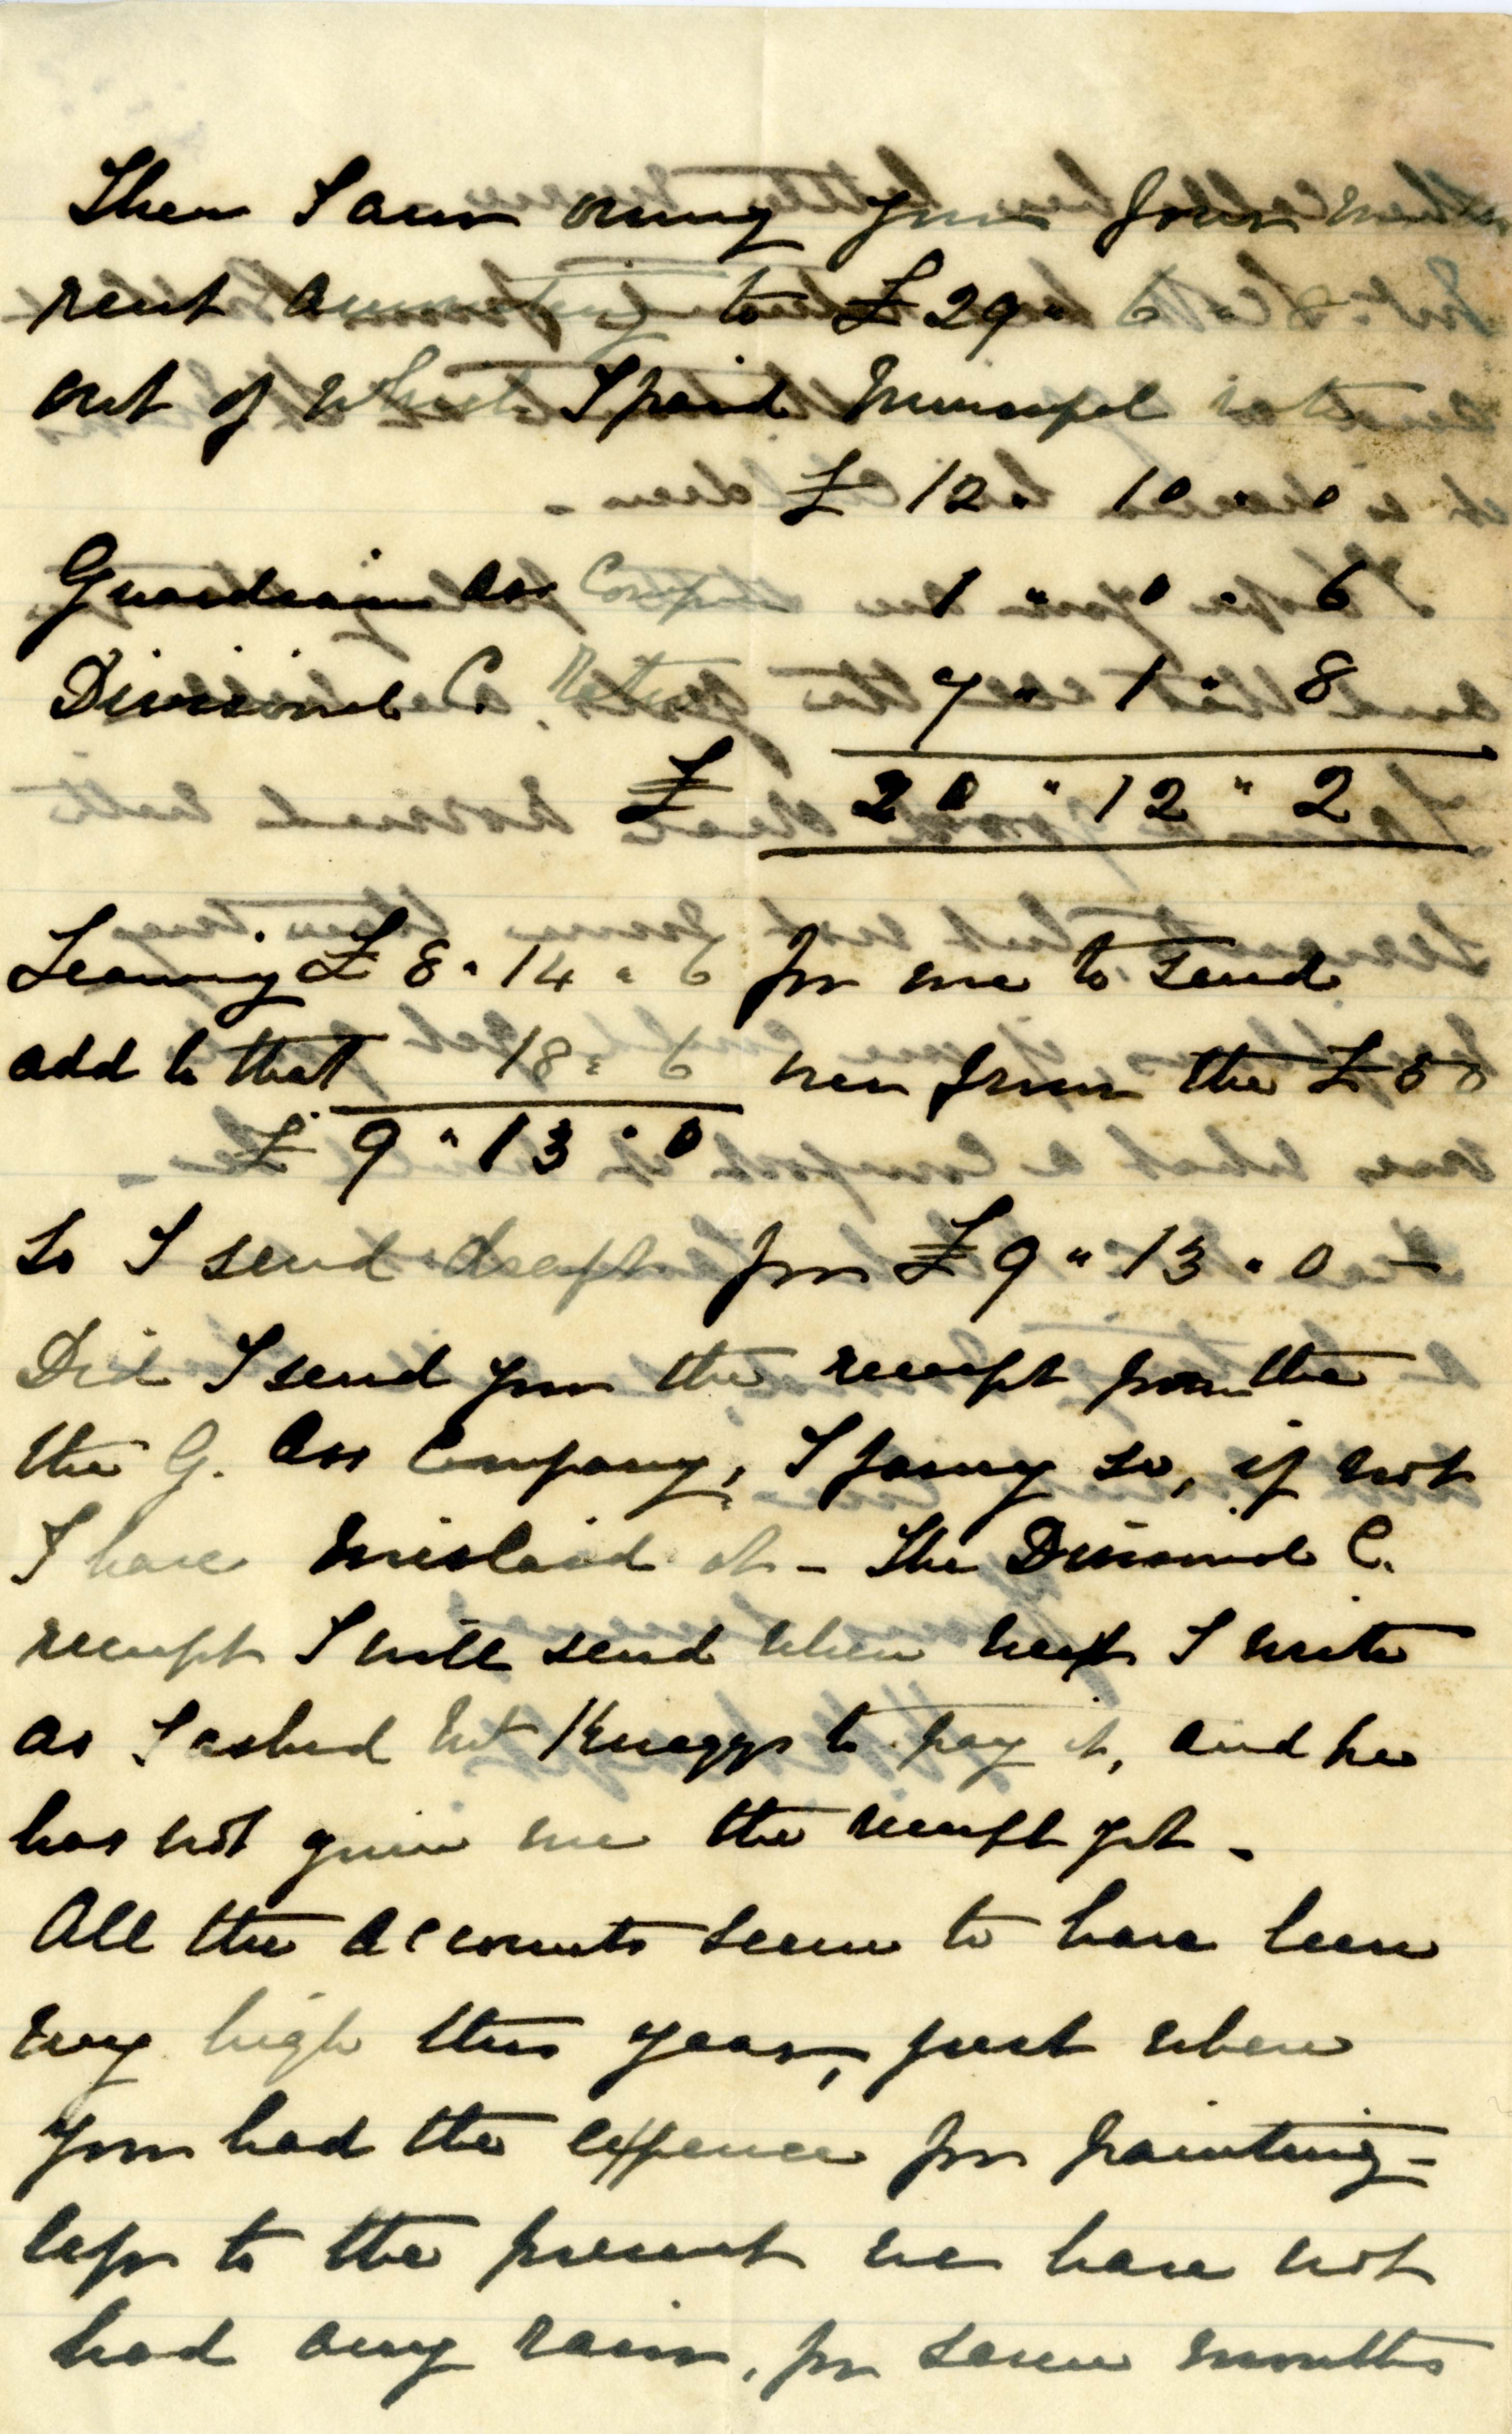 Then I am owing you four
rent amounting to £29 " 6 "
out of which I paid Municipal rate
£ 12 " 10 " 0
Guardian Ass Company 1 " 0 " 6
Divisional C. Rates 7 " 1 " 8
£ 20 " 12 " 2
Leaving £ 8 " 14 " 6 for me to send
add to that 18 " 6 over from the £50
£ 9 " 13 " 0
So I send draft for £ 9 " 13 " 0 -
Did I send you the receipt from the
the G. Ass Company, I fancy so, if not
I have mislaid it - The Divisional C.
receipt I will send when next I write
as I asked Mr Knaggs to pay it, and he
has not given me the receipt yet -
All the accounts seem to have been
very high this year, just when
you had the expence for painting -
Up to the present we have not
had any rain, for seven months